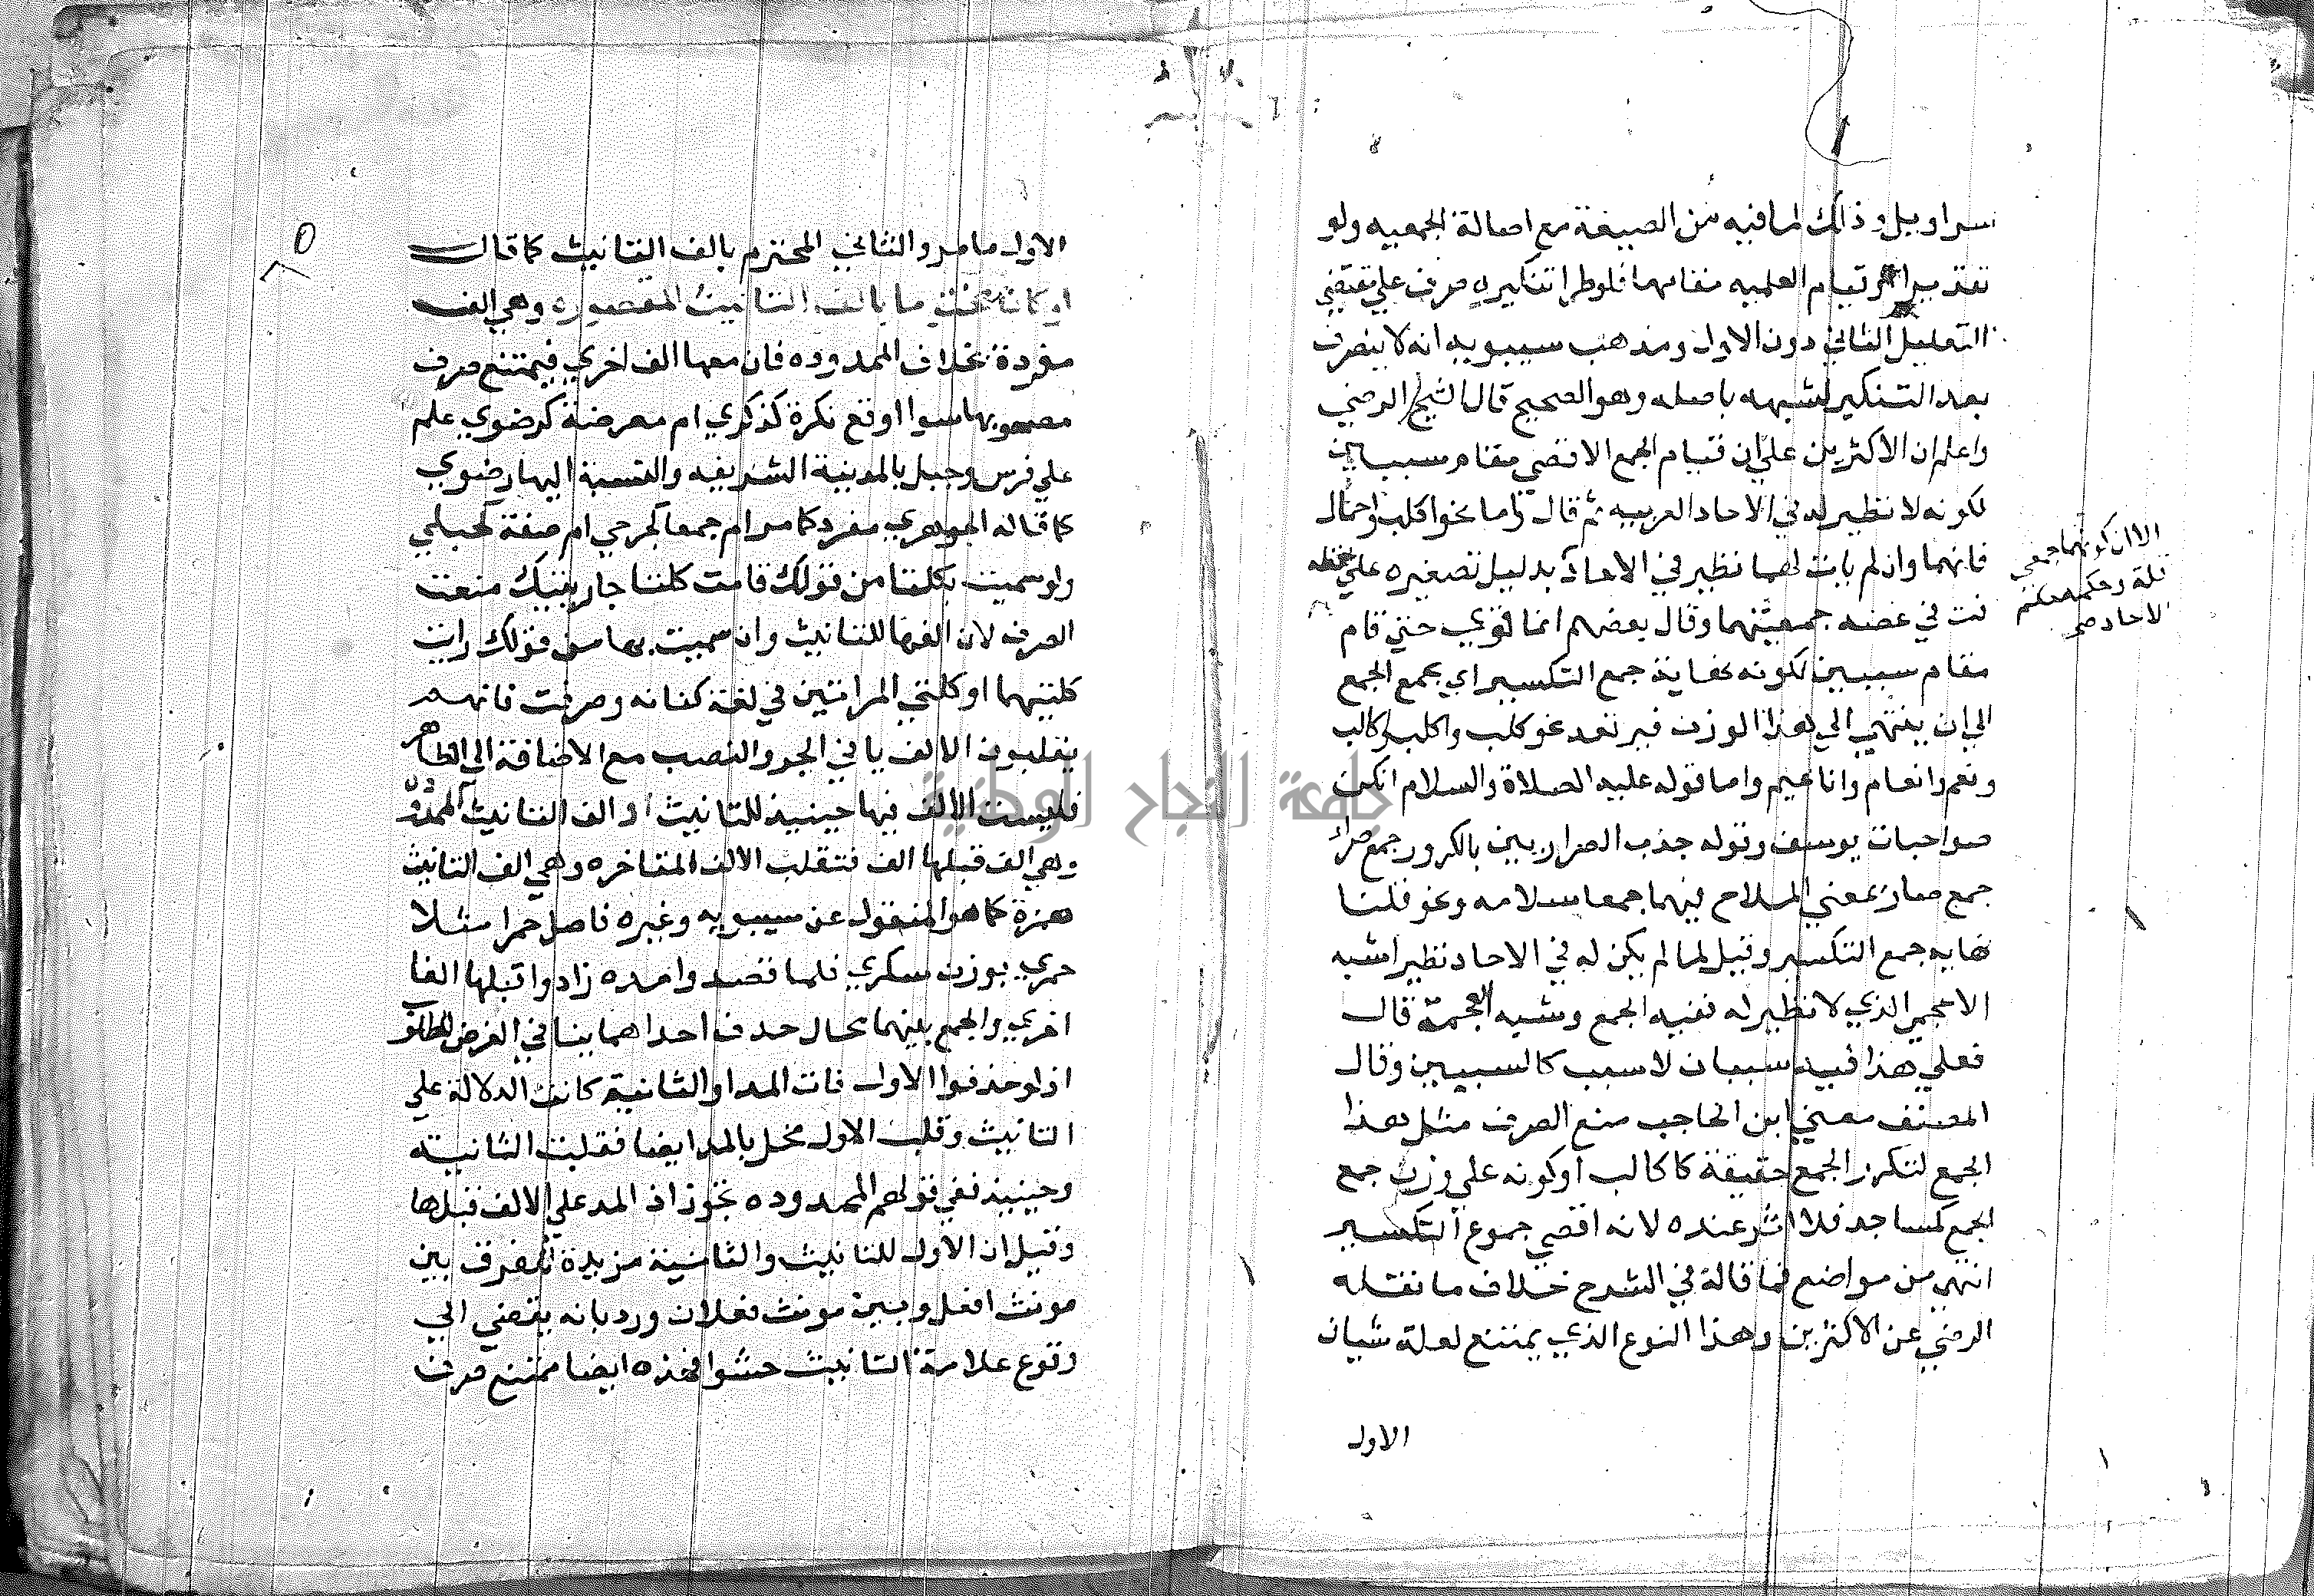 سراويل وذلك لما فيه من الصيغة مع اصالة الجمعيه ولو
تقديرا لقيام العلميه مقامها فلو طرا تنكيره صرف علي مقتضي
التعليل الثاني دون الاول ومذهب سيبويه انه لا ينصرف
بعد التنكير لشبهه باصله وهو الصحيح قال الشيخ الرضي
واعلم ان الاكثرين علي ان قيام الجمع الاقصي مقام سببين
لكونه لا نظير له في الاحاد العربيه ثم قال واما نحو اكلب واجمال
فانهما وان لم يات لهما نظير في الاحاد بدليل تصغيره علي لفظه
الا ان كونهما جمعي
قلة وحكمهما حكم
الاحاد صح
فت في عضد جمعيتهما وقال بعضهم انما قوي حتي قام
مقام سببين لكونه نهاية جمع التكسير اي يجمع الجمع
الي ان ينتهي الي هذا الوزن فيرتعد نحو كلب واكلب واكالب
ونعم وانعام واناعيم واما قوله عليه الصلاة والسلام انكن
صواحبات يوسف وقوله جذب الصراريين بالكرور جمع صراء
جمع صار بمعني الملاح فيهما جمعا سلامه ونحو قلنا
نهايه جمع التكسير وقيل لما لم يكن له في الاحاد نظير اشبه
الاعجمي الذي لا نظير له ففيه الجمع وشبه العجمة قال
فعلي هذا فيه سببان لا سبب كالسببين وقال
المصنف معني ابن الحاجب منع الصرف مثل هذا
الجمع لتكرر الجمع حقيقة كاكالب او كونه علي وزن جمع
الجمع كمساجد فلا اثر عنده لانه اقصي جموع التكسير
انتهي من مواضع فما قاله في الشرح خلاف ما نقله
الرضي عن الاكثرين وهذا النوع الذي يمتنع لعلة شيان
الاول
الاول ما مر والثاني المختوم بالف التانيث كما قال
او كانت ما بالف التانيث المقصوره وهي الف
مفردة بخلاف الممدوده فان معها الف اخري فيمتنع صرف
مصحوبها سوا اوقع نكرة كذكري ام معرفة كرضوي علم
علي فرس وجبل بالمدينة الشريفه والنسبة اليها رضوي
كما قاله الجوهري مفرد كما مر ام جمعا كجرحي ام صفة كحبلي
ولو سميت بكلتا من قولك قامت كلتا جاريتيك منعت
الصرف لان الفها للتانيث وان سميت بها من قولك رايت
كلتيهما او كلتي المراتين في لغة كنانه وصرفت فانهم
يقلبون الالف يا في الجر والنصب مع الاضافة الي الظاهر
فليست الالف فيها حينيذ للتانيث او الف التانيث الممدود
وهي الف قبلها الف فتقلب الالف المتاخره وهي الف التانيث
همزة كما هو المنقول عن سيبويه وغيره فاصل حمرا مثلا
حمري بوزن سكري فلما قصد وا مده زادوا قبلها الفا
اخري والجمع بينهما محال حذف احداهما ينافي الغرض المطلوب
اذ لو حذفوا الاولي فات المد او الثانية كانت الدلاله علي
التانيث وقلب الاولي مخل بالمد ايضا فقلبت الثانيه
وحينيذ ففي قولهم الممدوده تجوز اذ المد علي الالف قبلها
وقيل ان الاولي للتانيث والثانية مزيدة للفرق بين
مونث افعل وبين مونث فعلان ورد بانه يقضي الي
وقوع علامة التانيث حشوا فهذه ايضا ممتنع صرف
جامعة النجاح الوطنية